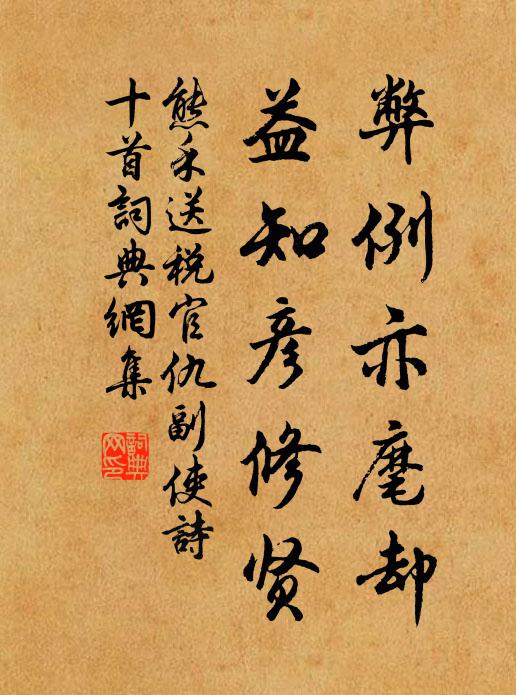 弊例亦麾却
益知彦修贤
熊禾送税官仇副使詩
十首詞典網集
詞典網印